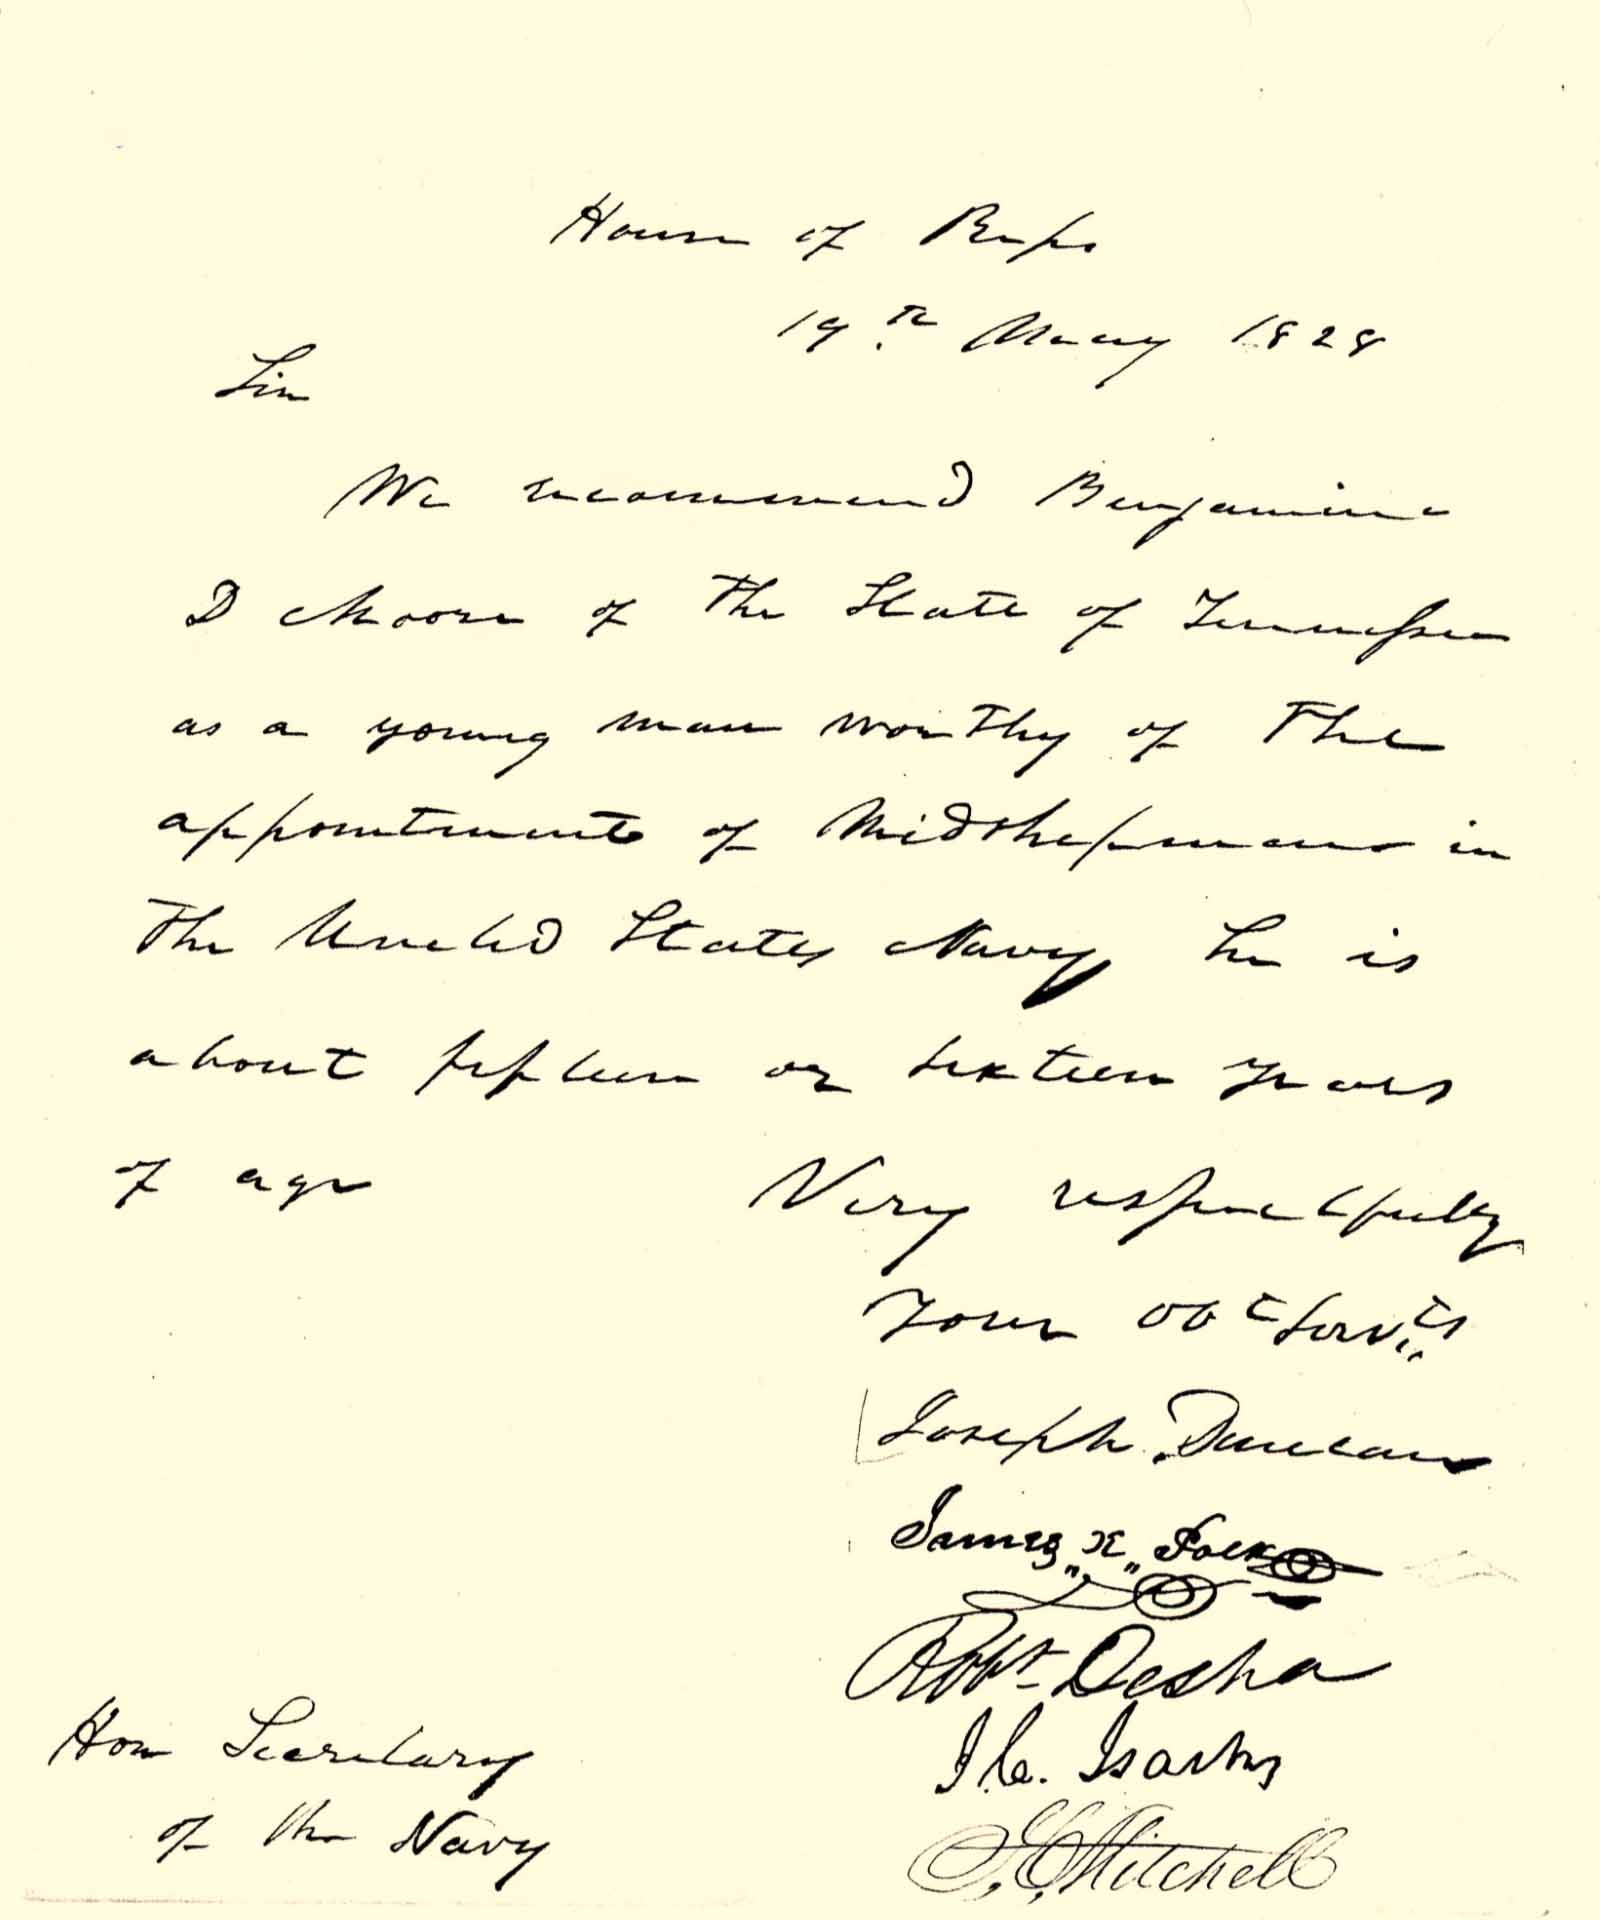 House of Reps
19th May 1828
Sir
We recommend Benjamine
D Moore of the State of Tennessee
as a young man worthy of the
appointment of Midshipman in
the United States Navy he is
about fifteen or sixteen years
of age
Very respectfully
Your Obt Servts
Joseph Duncan
James K Polk
Robt Desha
J C. Isacks
J. C. Mitchell
Hon Secretary
of the Navy